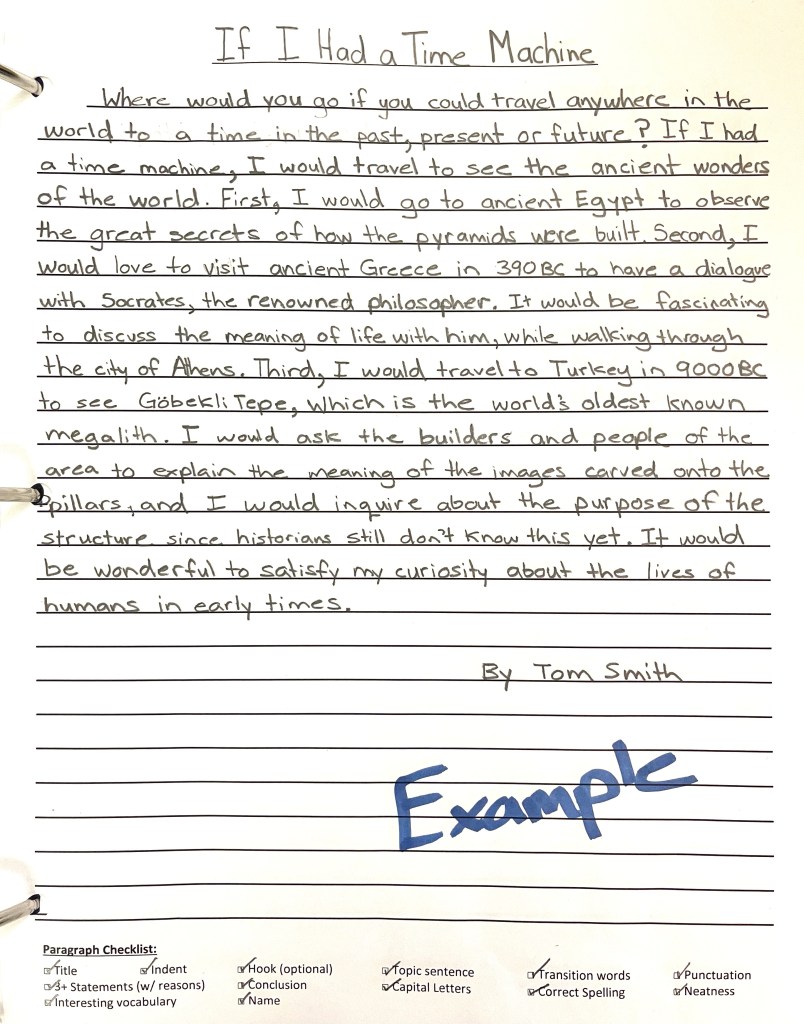 If I Had a Time Machine
Where would you go if you could travel anywhere in the
world to a time in the past, present or future? If I had
a time machine, I would travel to see the ancient wonders
of the world. First, I would go to ancient Egypt to observe
the great secrets of how the pyramids were built. Second, I
would love to visit ancient Greece in 390 BC to have a dialogue
with Socrates, the renowned philosopher. It would be fascinating
to discuss the meaning of life with him, while walking through
the city of Athens. Third, I would travel to Turkey in 9000 BC
to see Göbekli Tepe, which is the world's oldest known
megalith. I would ask the builders and people of the
area to explain the meaning of the images carved onto the
pillars, and I would inquire about the purpose of the
structure since historians still don't know this yet. It would
be wonderful to satisfy my curiosity about the lives of
humans in early times.
By Tom Smith
Example
Paragraph Checklist:
Title Indent Hook (optional) Topic sentence Transition words Punctuation
3+ Statements (w/ reasons) Conclusion Capital Letters Correct Spelling Neatness
Interesting vocabulary Name